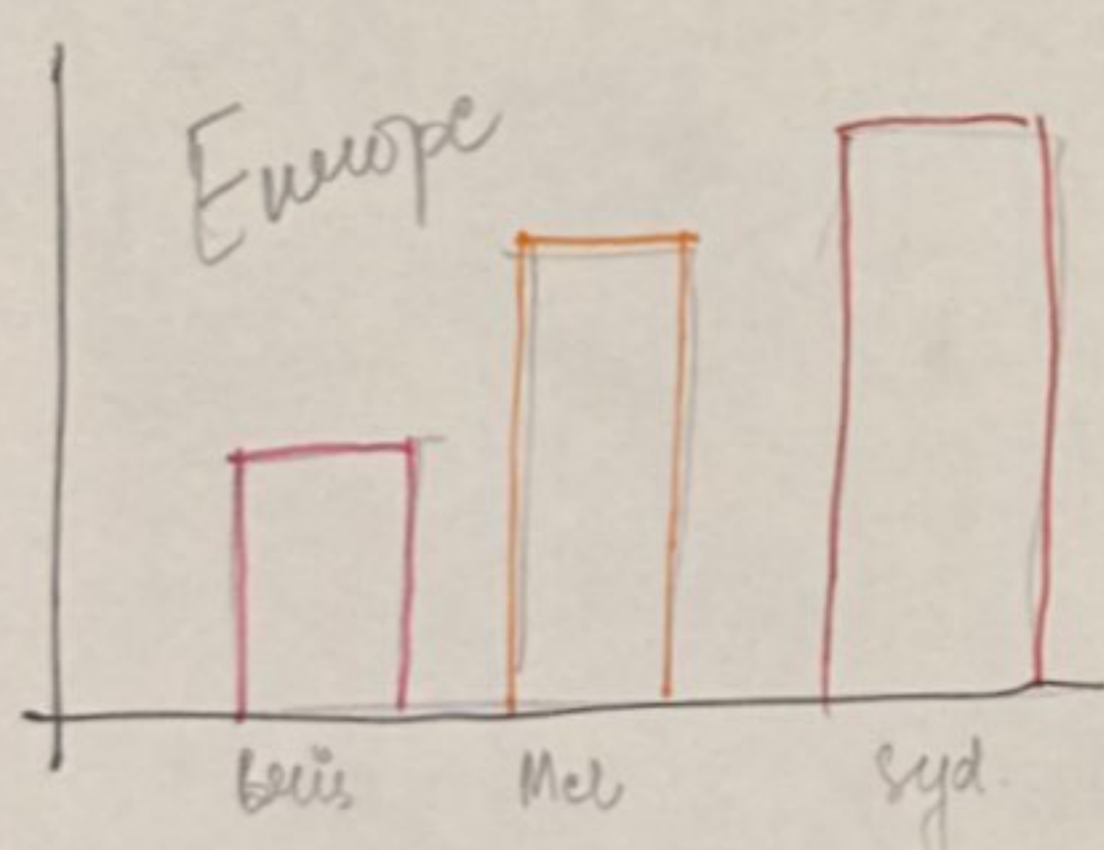 Europe
Bris
Mel
Syd.